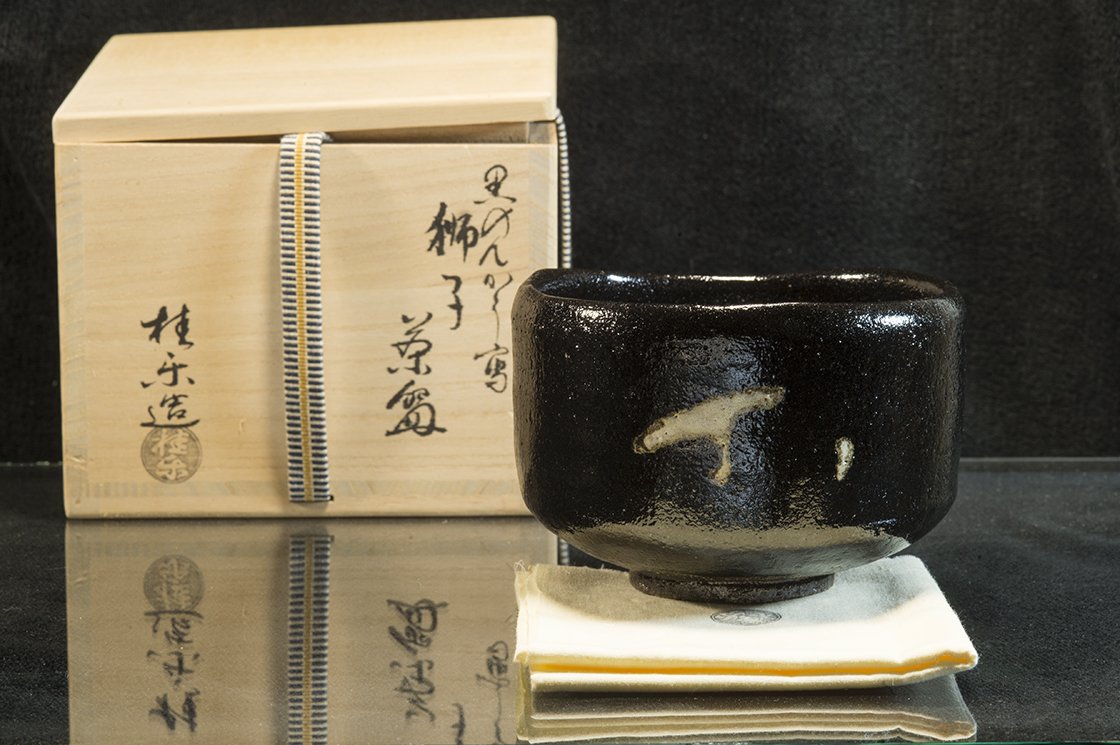 黒のんかう寫
獅子
茶盌
桂楽造